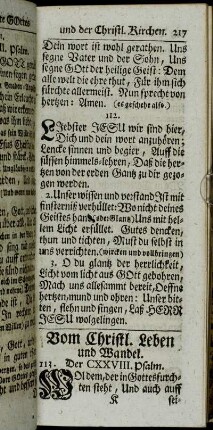 und der Christl. Kirchen. 217
Dein wort ist wohl gerathen. Uns
segne Vater und der Sohn, Uns
segne GOtt der heilige Geist: Dem
alle welt die ehre thut, Für ihm sich
fürchte allermeist. Nun sprecht von
hertzen: Amen. (es geschehe also.)
112.
LIebster JESU wir sind hier,
Dich und dein wort anzuhören;
Lencke sinnen und begier, Auff die
süssen himmels-lehren, Daß die her-
tzen von der erden Gantz zu dir gezo-
gen werden.
2. Unser wissen und verstand Ist mit
finsterniß verhüllet: Wo nicht deines
Geistes hand (oder Glantz) Uns mit hel-
lem Licht erfüllet. Gutes dencken,
thun und tichten, Must du selbst in
uns verrichten. (wircken und vollbringen)
3. O du glantz der herrlichkeit,
Licht vom liecht aus GOtt gebohren,
Mach uns allesammt bereit, Oeffne
hertzen, mund und ohren: Unser bit-
ten, flehn und singen, Laß HERR
JESU wolgelingen.
Vom Christl. Leben
und Wandel.
113. Der CXXVIII. Psalm.
WOl dem, der in Gottes furch-
ten steht, Und auch auff
K sei-